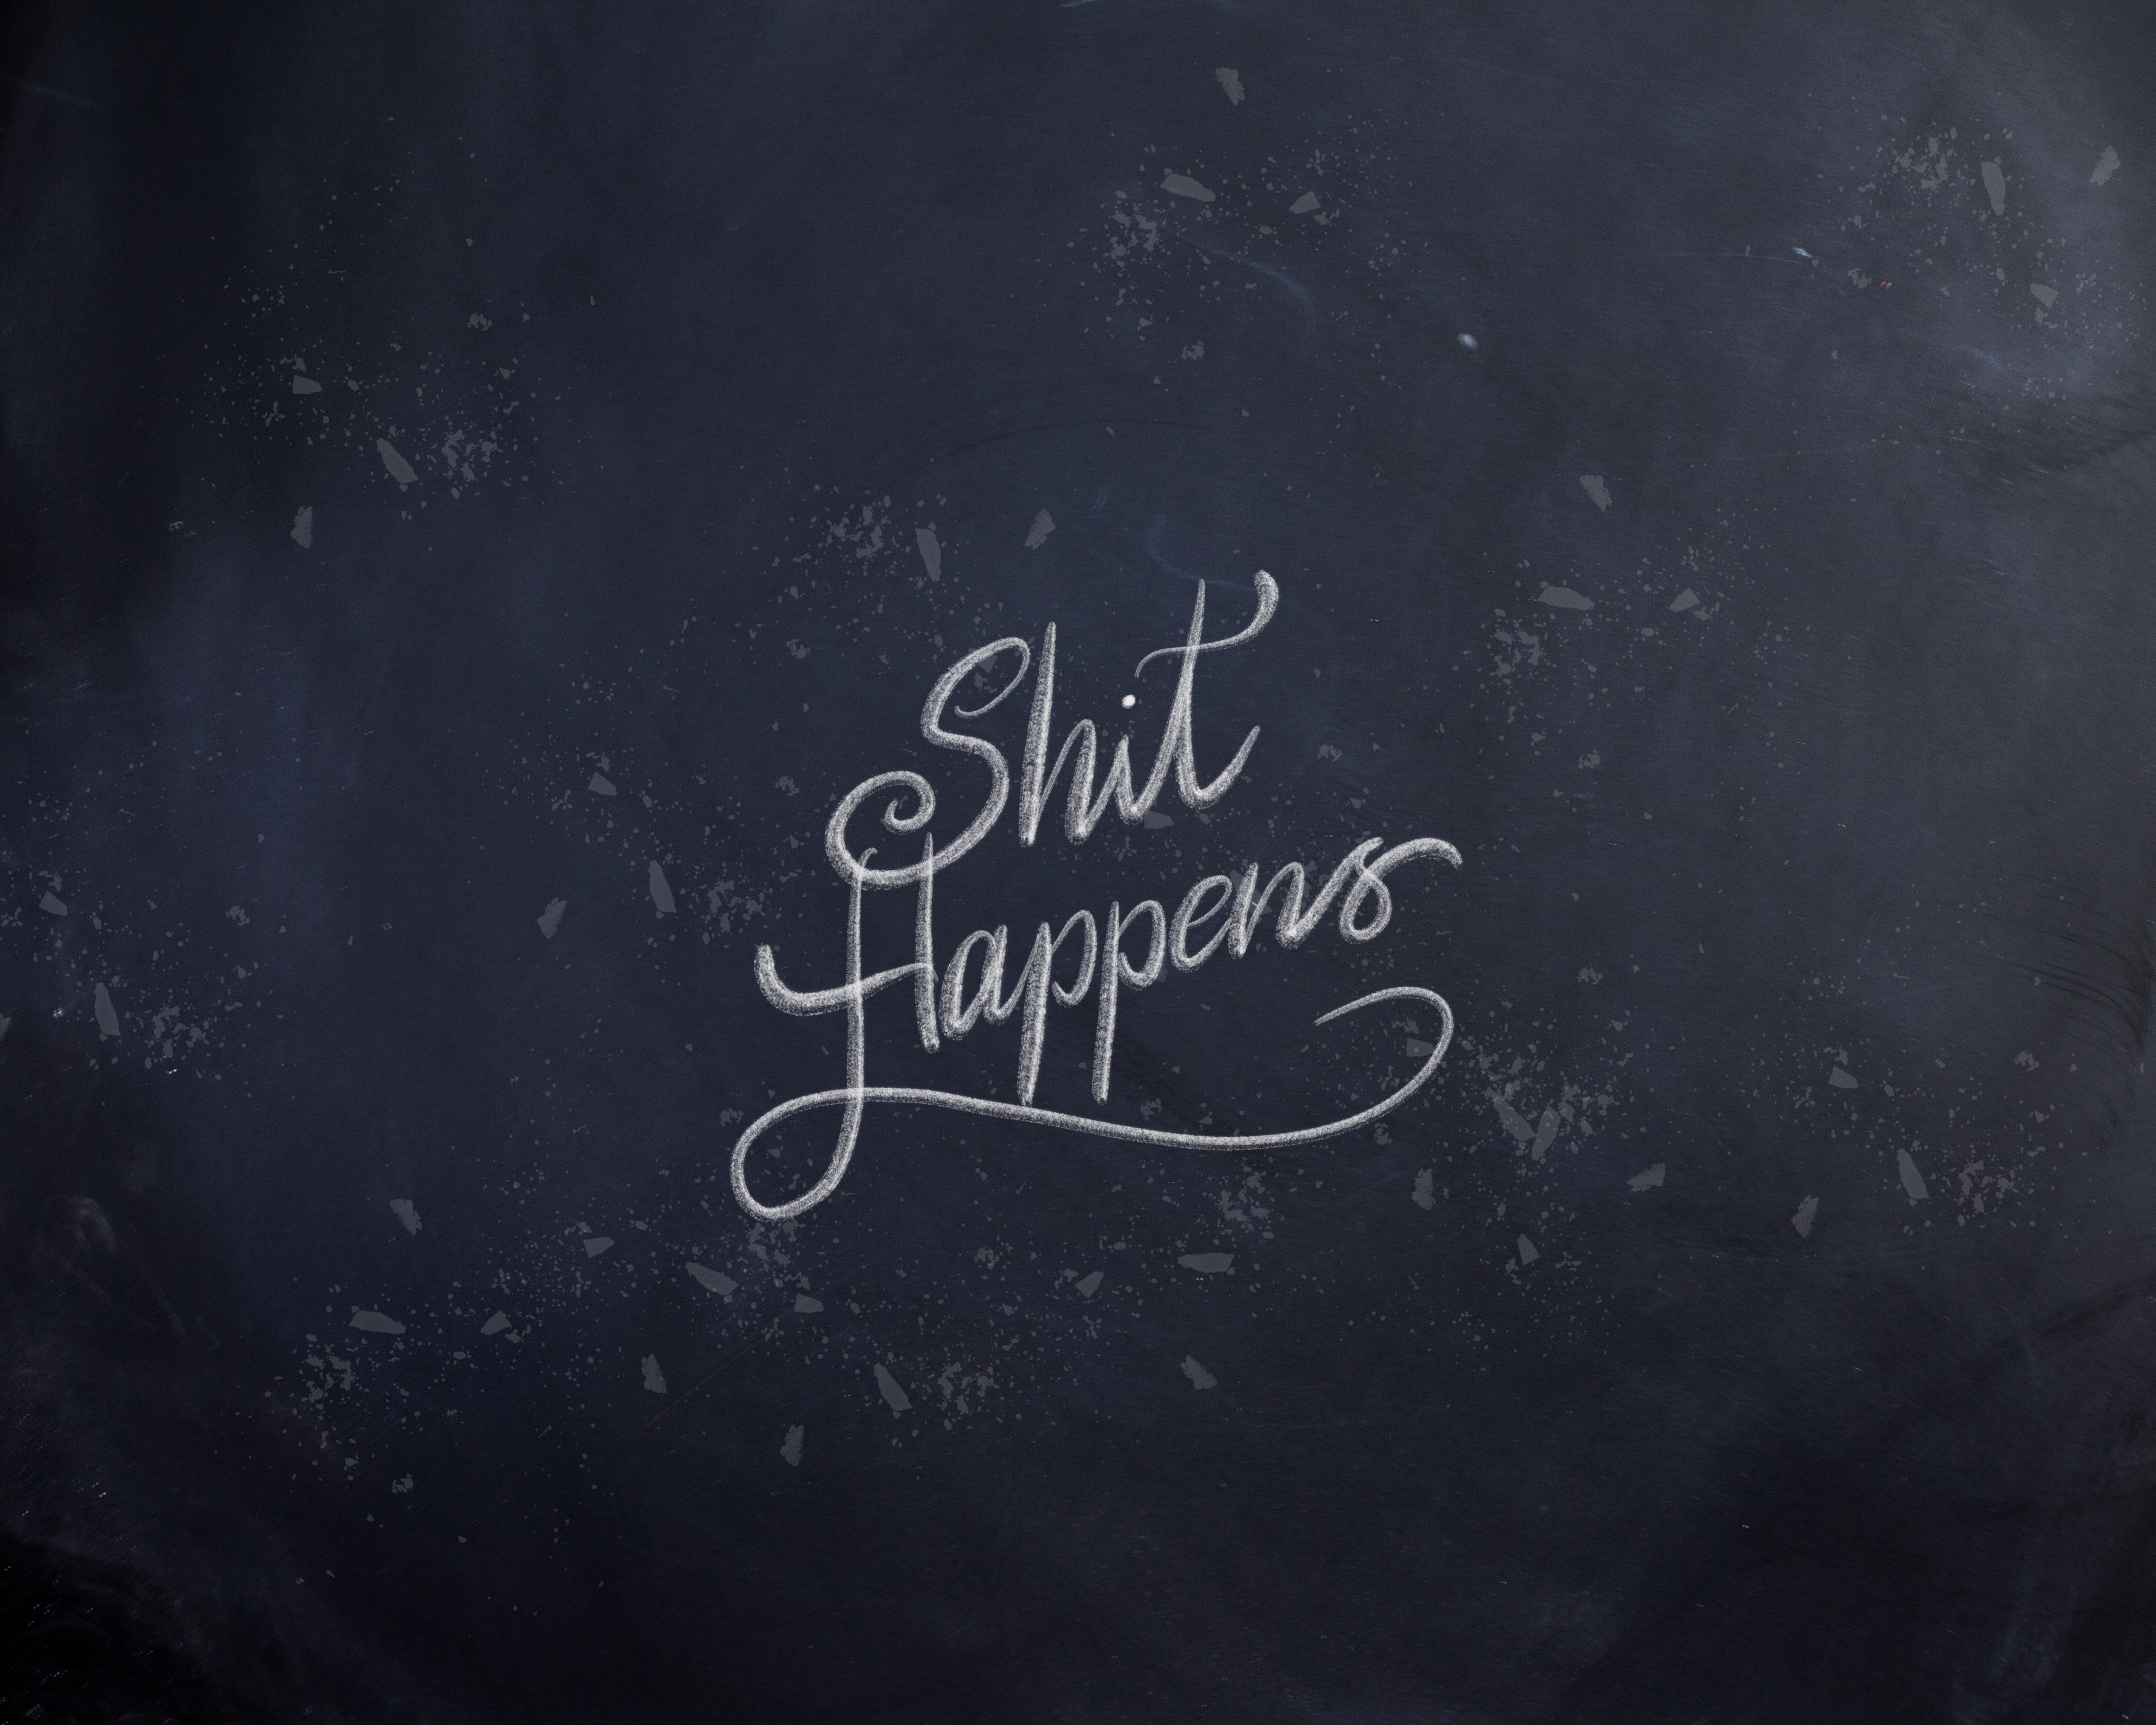 Shit
Happens